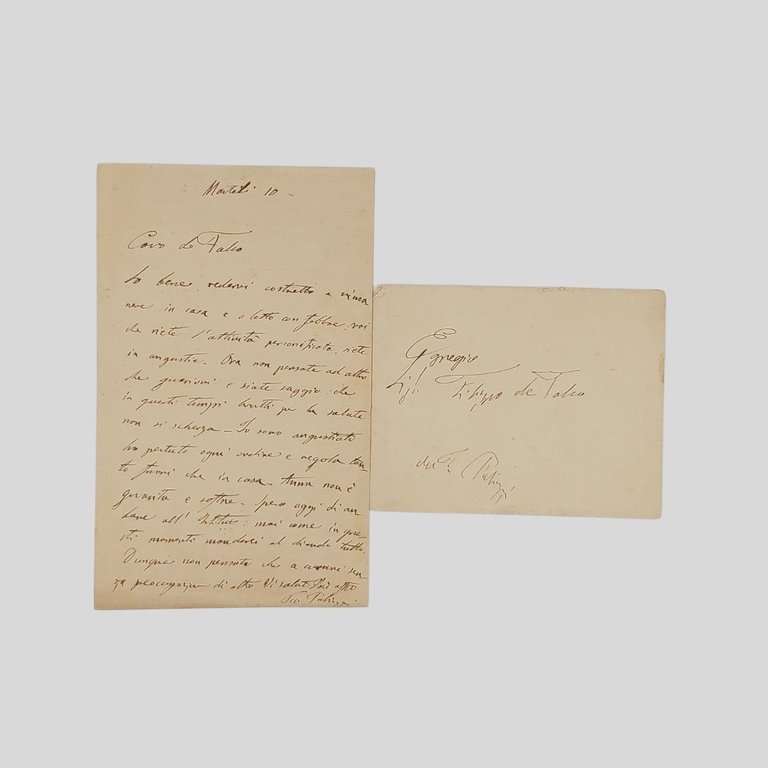 Martedì 10 -
Caro de Falco
So bene, vedervi costretto a rima
nere in casa e a letto con febbre; voi
che siete l'attività personificata, siete
in angustie. Ora non pensate ad altro
che guarirvi e siate saggio: che
in questi tempi brutti per la salute
non si scherza - Io sono angustiato
ho perduto ogni ordine e regola tan
to fuori che in casa - Anna non è
guarita e soffre - spero oggi di an
dare all' Istituto: mai come in que
sti momenti manderei al diavolo tutto
Dunque non pensate che a curarvi sen
za preoccuparvi di altro Vi saluto
Egregio
Sig. Filippo de Falco